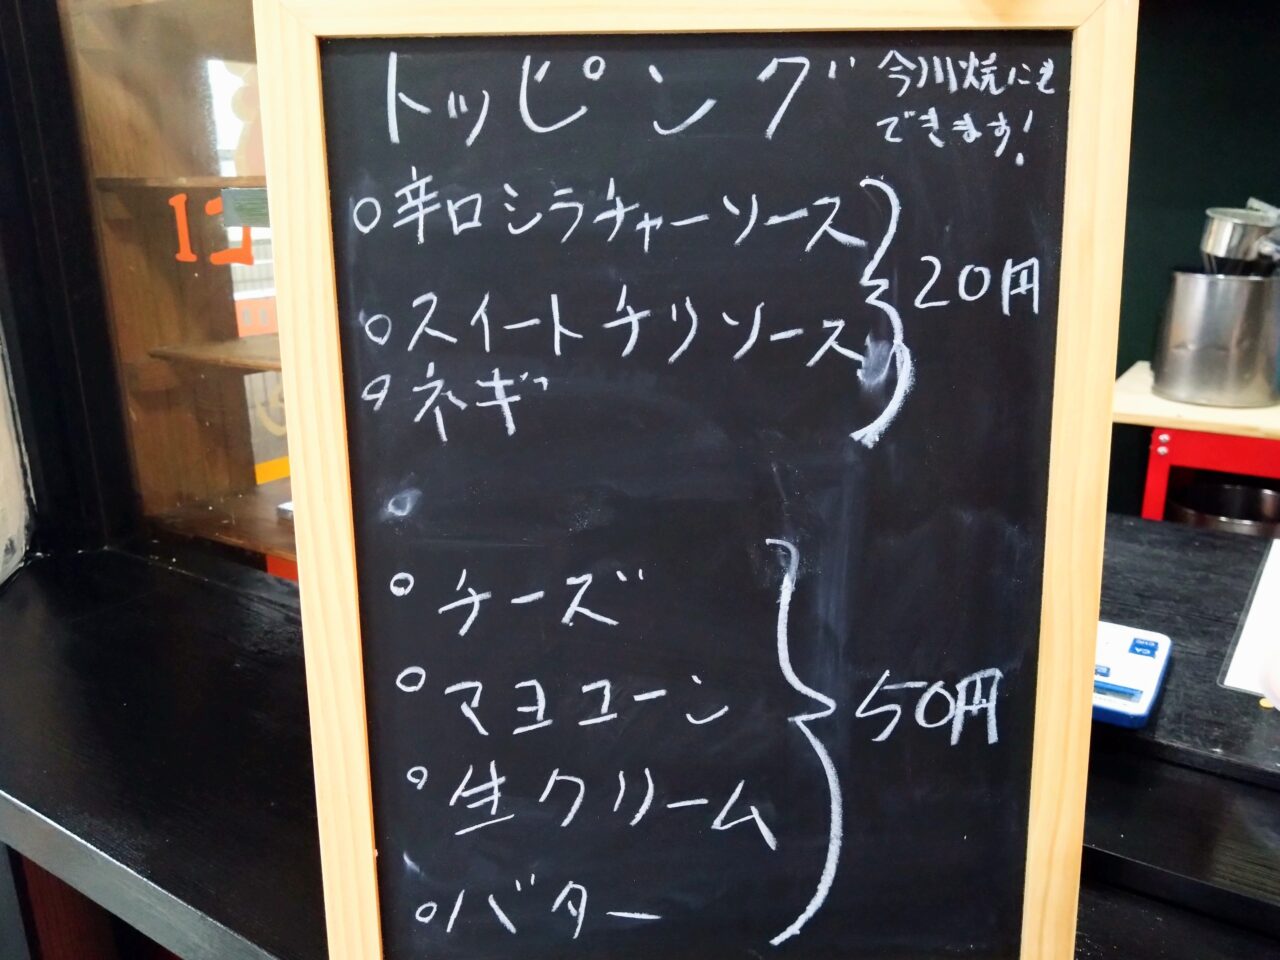 トッピング
今川焼にも
できます!
○辛口シラチャーソース
○スイートチリソース
○ネギ
20円
○チーズ
○マヨコーン
○生クリーム
○バター
50円